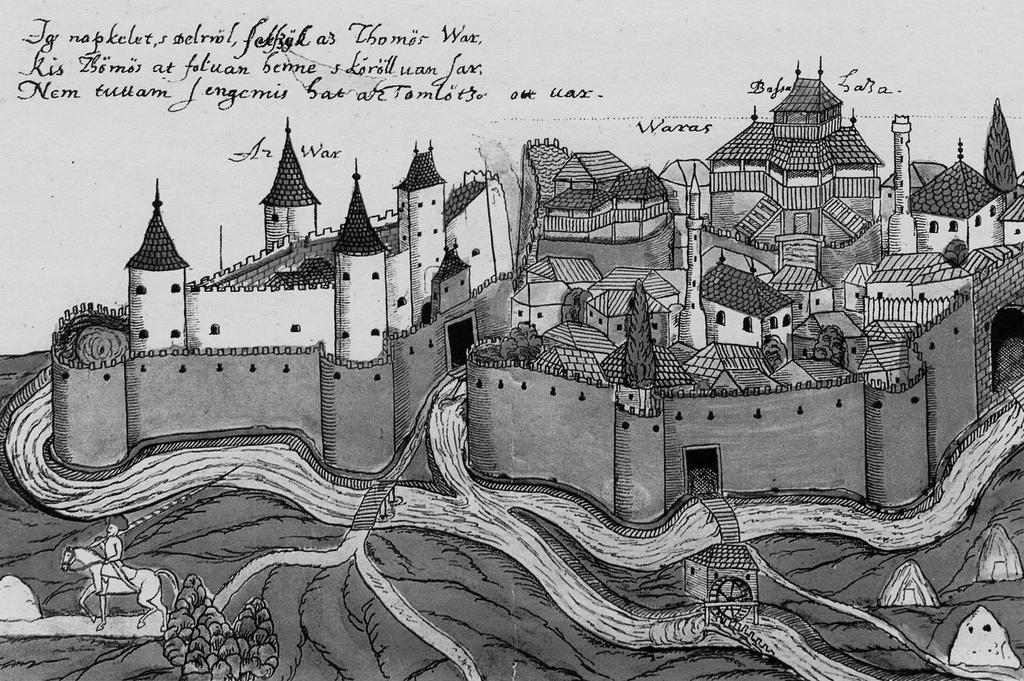 Ig napkelet, s delröl, az Thömös War,
Kis Thömös at foluan benne s köröll uan sar,
Nem tuttam hat az Tomlötze ott uar.
Bassa haza.
Waras
Az War